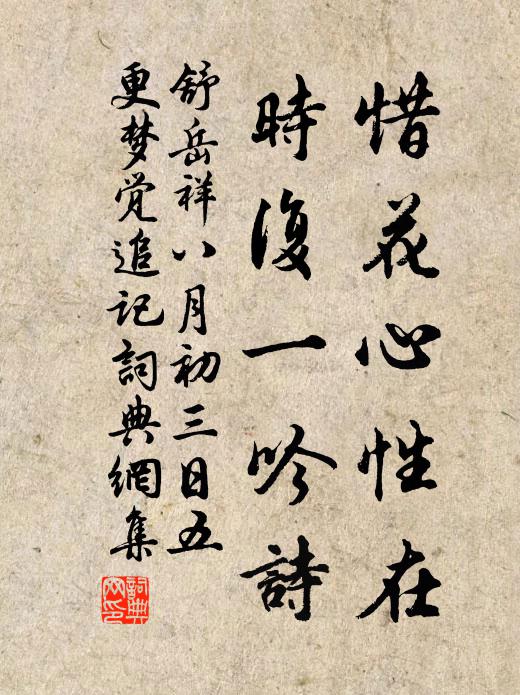 惜花心性在
時復一吟詩
舒岳祥八月初三日五
更梦觉追记詞典網集
詞典网印